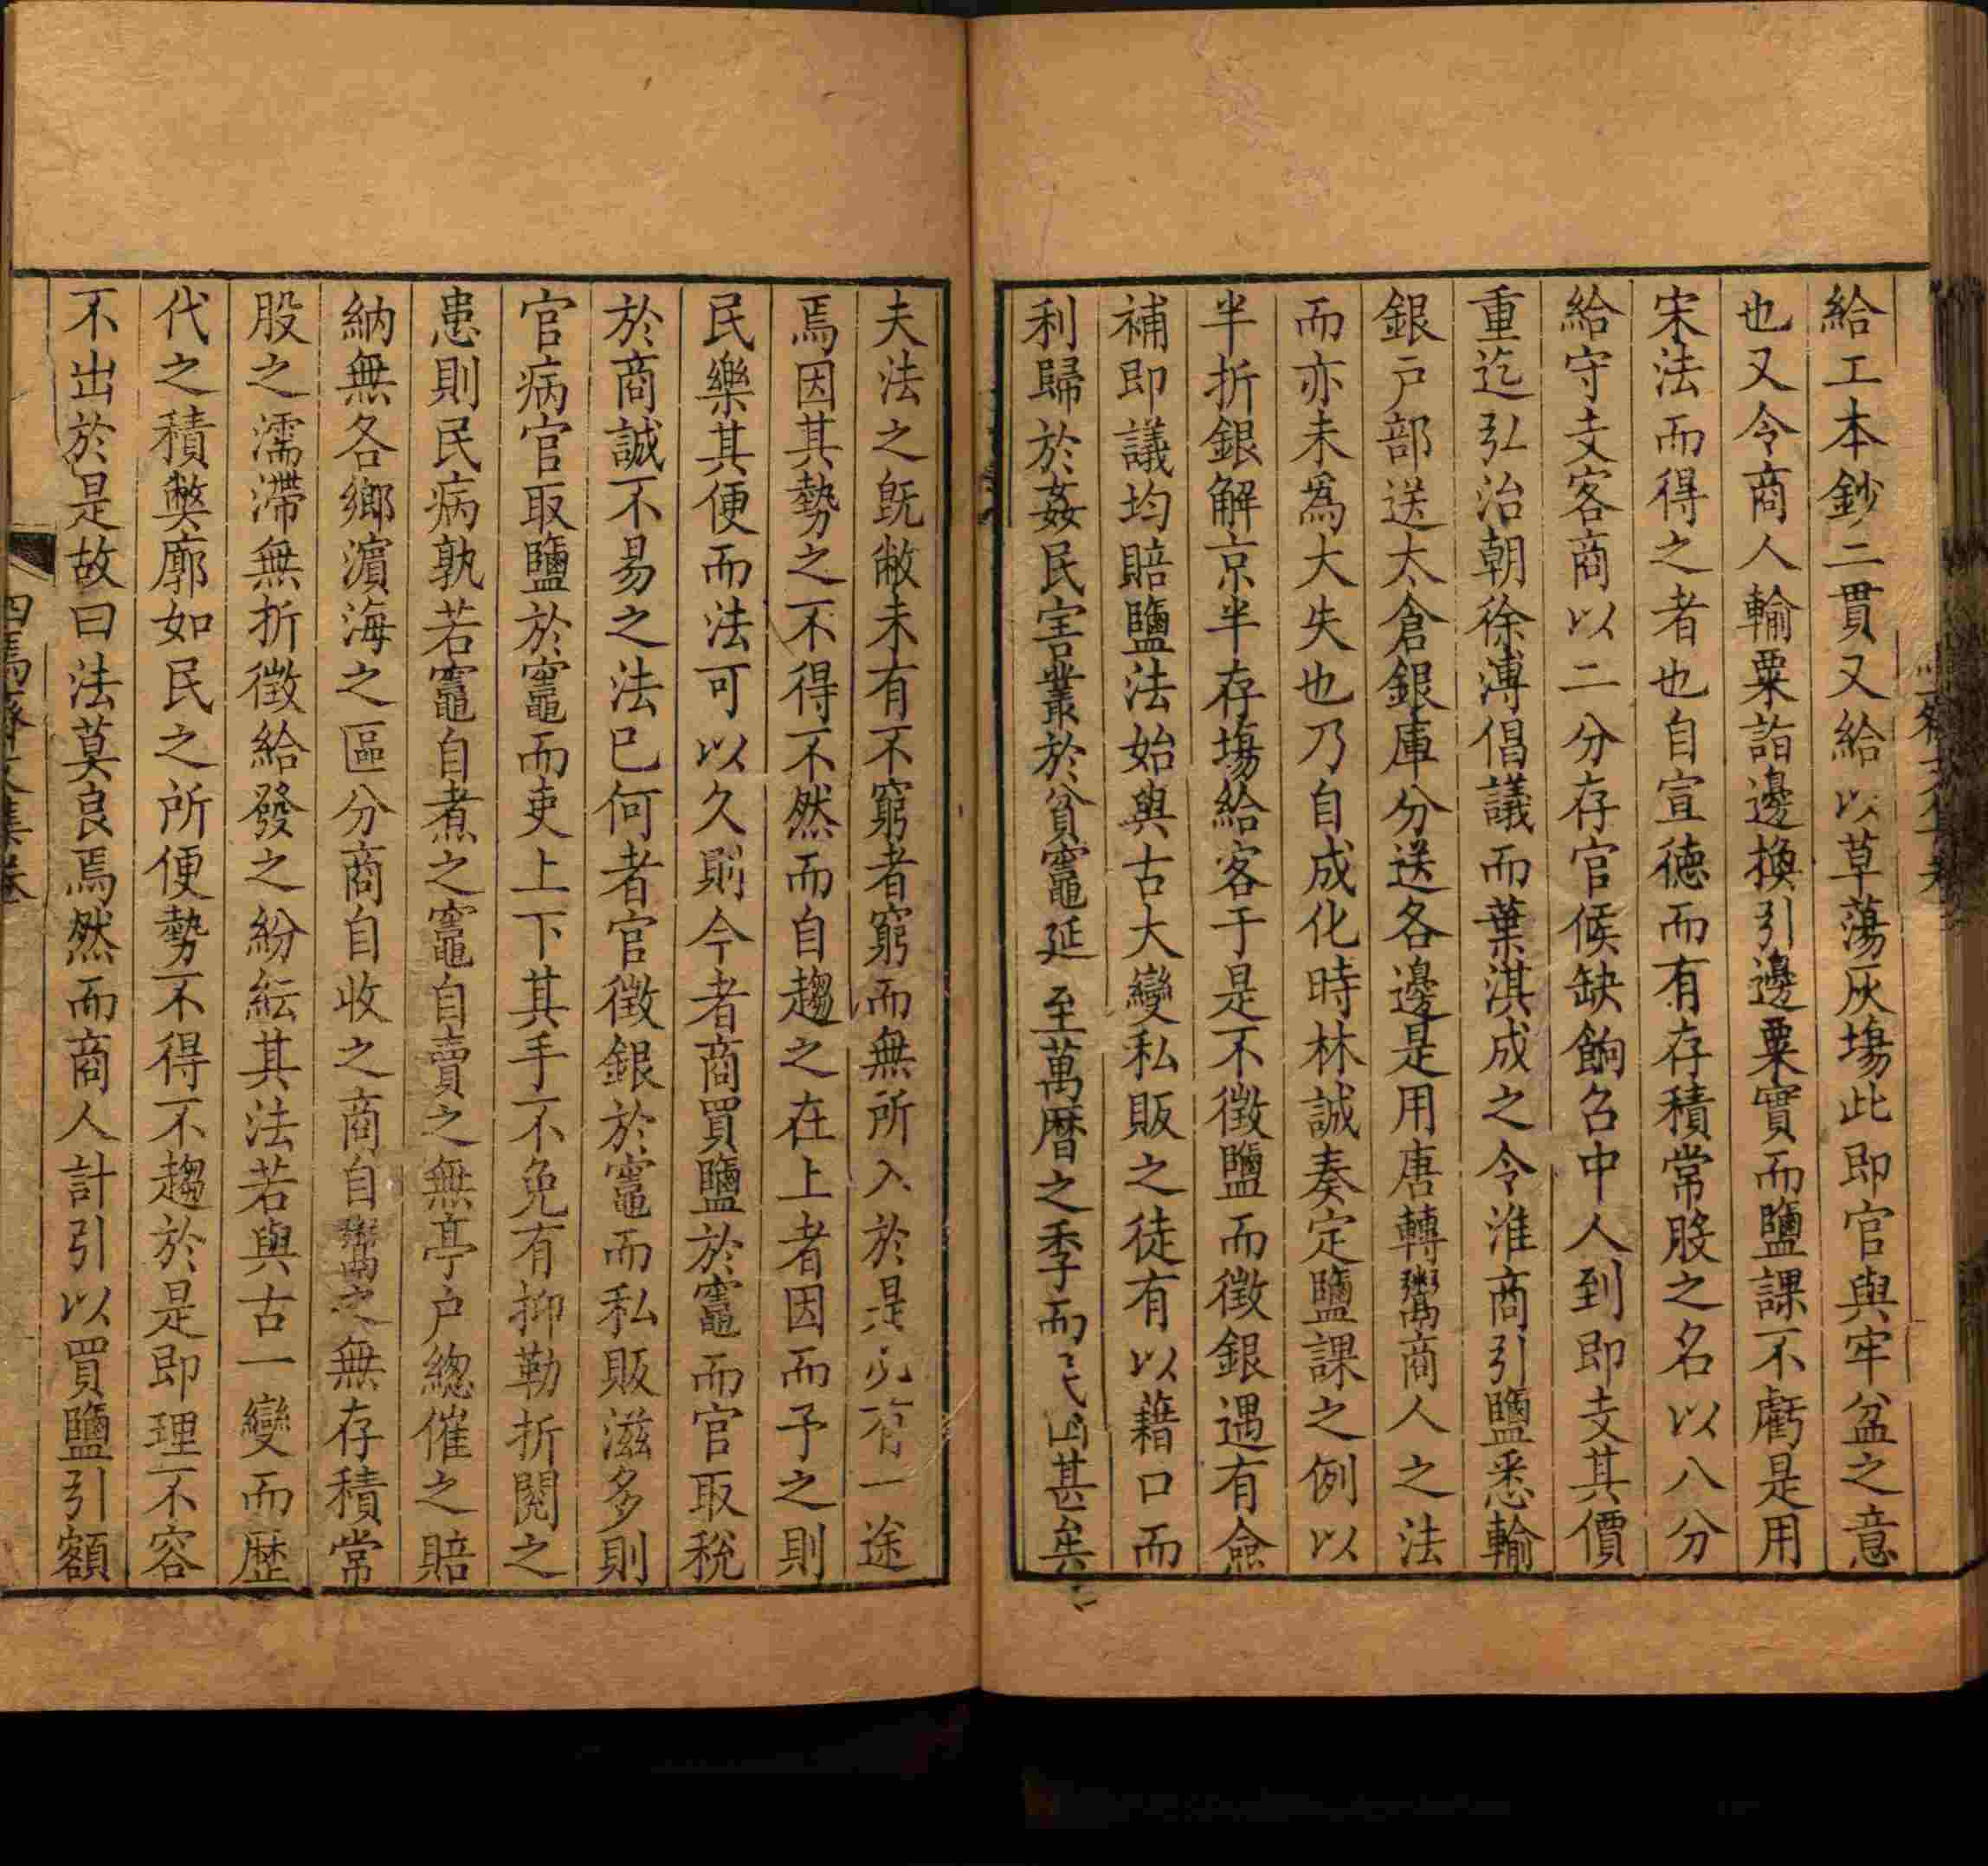 給工本鈔二貫又給以草蕩灰塲此即官與牢盆之意
也又令商人輸粟詣邊換引邊粟實而鹽課不虧是用
宋法而得之者也自宣徳而有存積常股之名以八分
給守支客商以二分存官候缺餉召中人到即支其價
重迄弘治朝徐溥倡議而葉淇成之令淮商引鹽悉輸
銀戸部送太倉銀庫分送各邊是用唐轉鬻商人之法
而亦未爲大失也乃自成化時林誠奏定鹽課之例以
半折銀解京半存塲給客于是不徵鹽而徵銀遇有僉
補即議均賠鹽法始與古大變私販之徒有以藉口而
利歸於姦民害叢於貧竈延至萬曆之季而民甚矣
夫法之旣敝未有不窮者窮而無所入於是有一途
焉因其勢之不得不然而自趨之在上者因而予之則
民樂其便而法可以久則今者商買鹽於竈而官取稅
於商誠不易之法已何者官徵銀於竈而私販滋多則
官病官取鹽於竈而吏上下其手不免有抑勒折閱之
患則民病孰若竈自煮之竈自賣之無亭户總催之賠
納無各鄉濵海之區分商自收之商自鬻之無存積常
股之濡滯無折徴給發之紛紜其法若與古一變而歴
代之積獘廓如民之所便勢不得不趨於是即理不容
不出於是故曰法莫良焉然而商人計引以買鹽引額